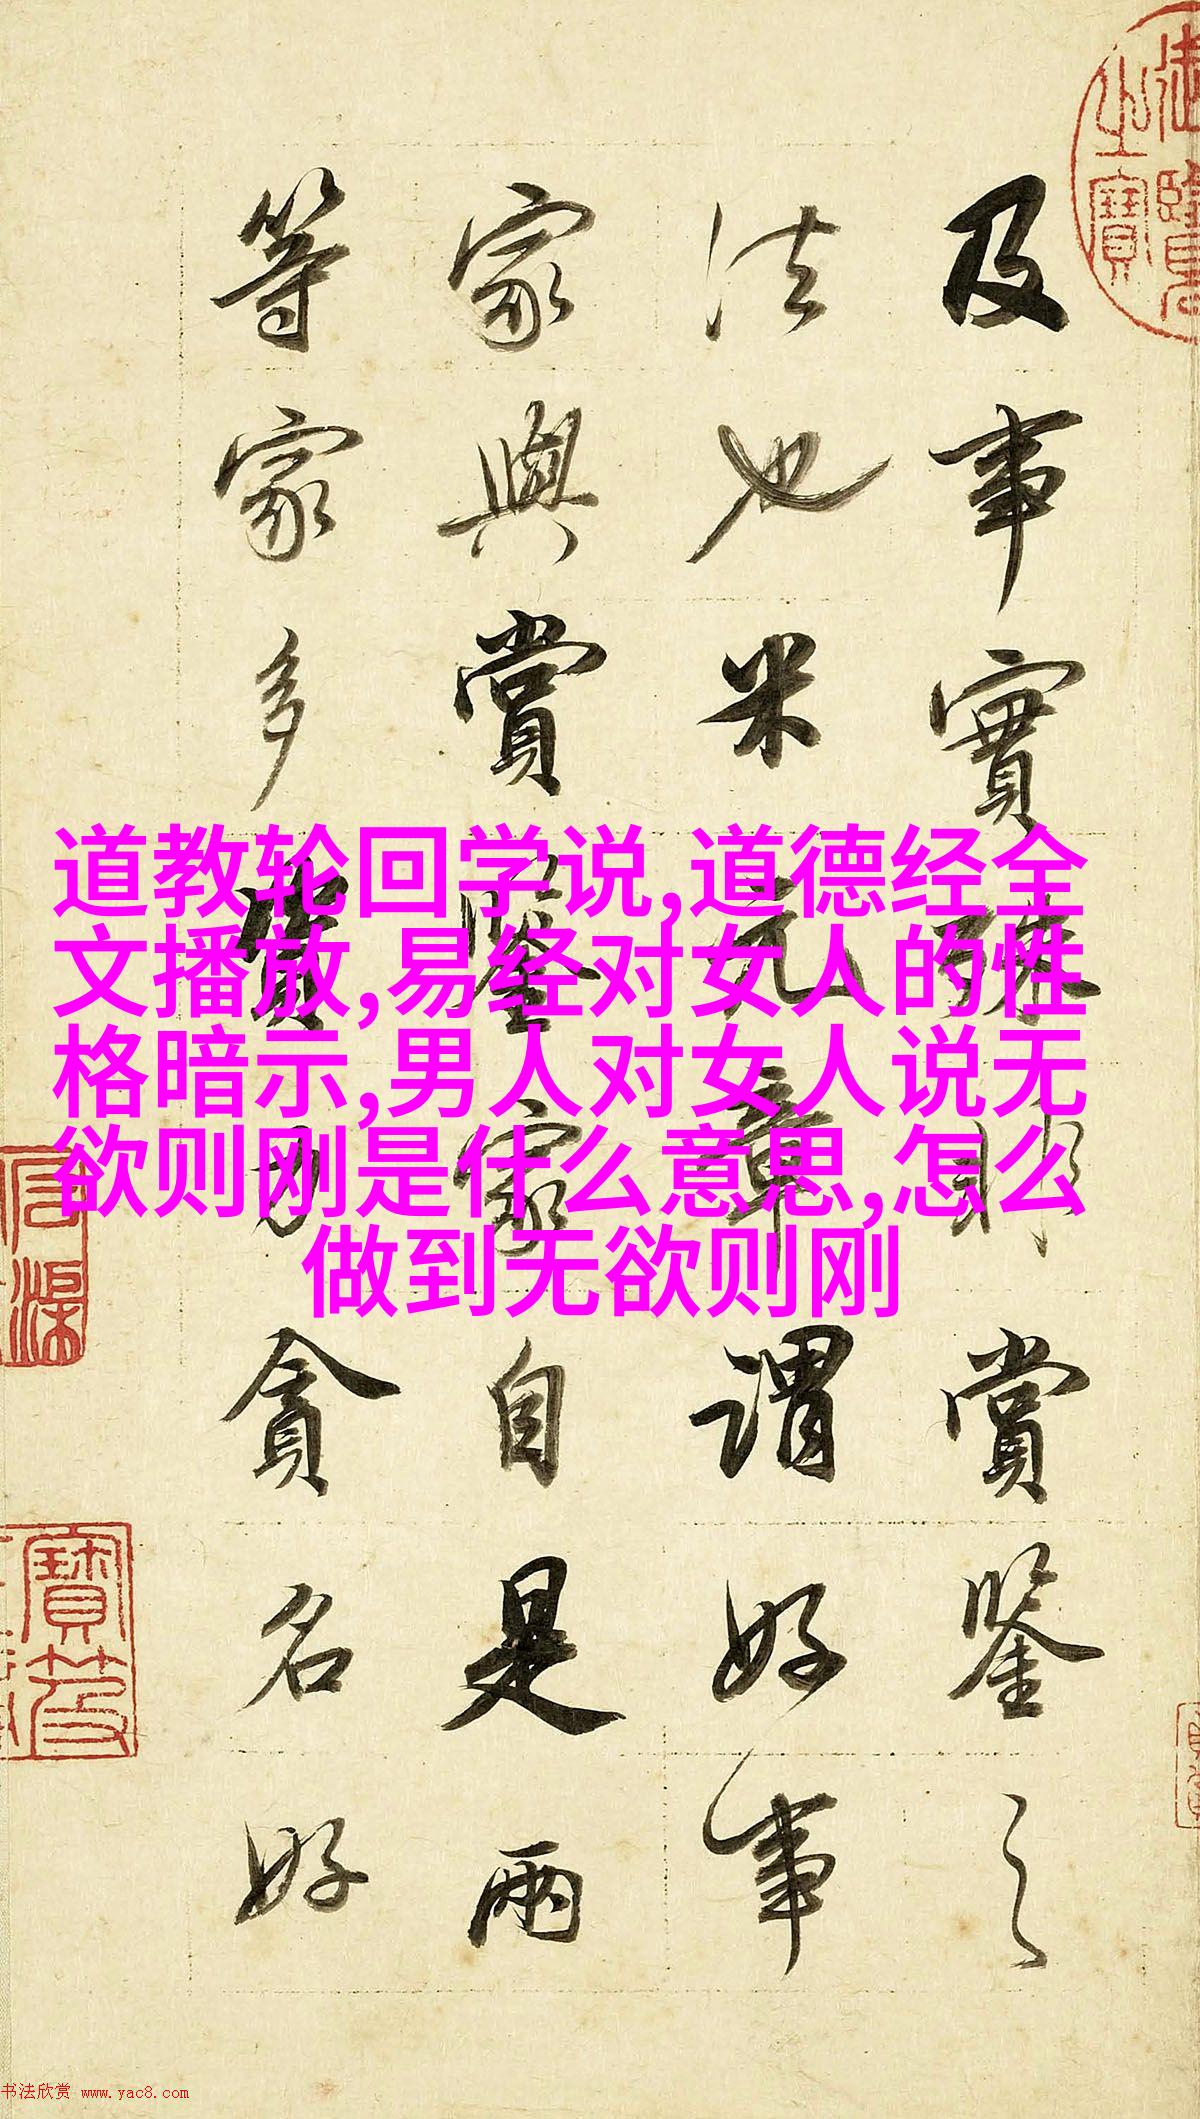 御覽
之寶
及事實殊明賞鑒之
法也米元章謂好事
家與賞鑒家自是兩
等家多資力貪名好
道教轮回学说,道德经全
文播放,易经对女人的性
格暗示,男人对女人说无
欲则刚是什么意思,怎么
做到无欲则刚
书法欣赏 www.yac8.com